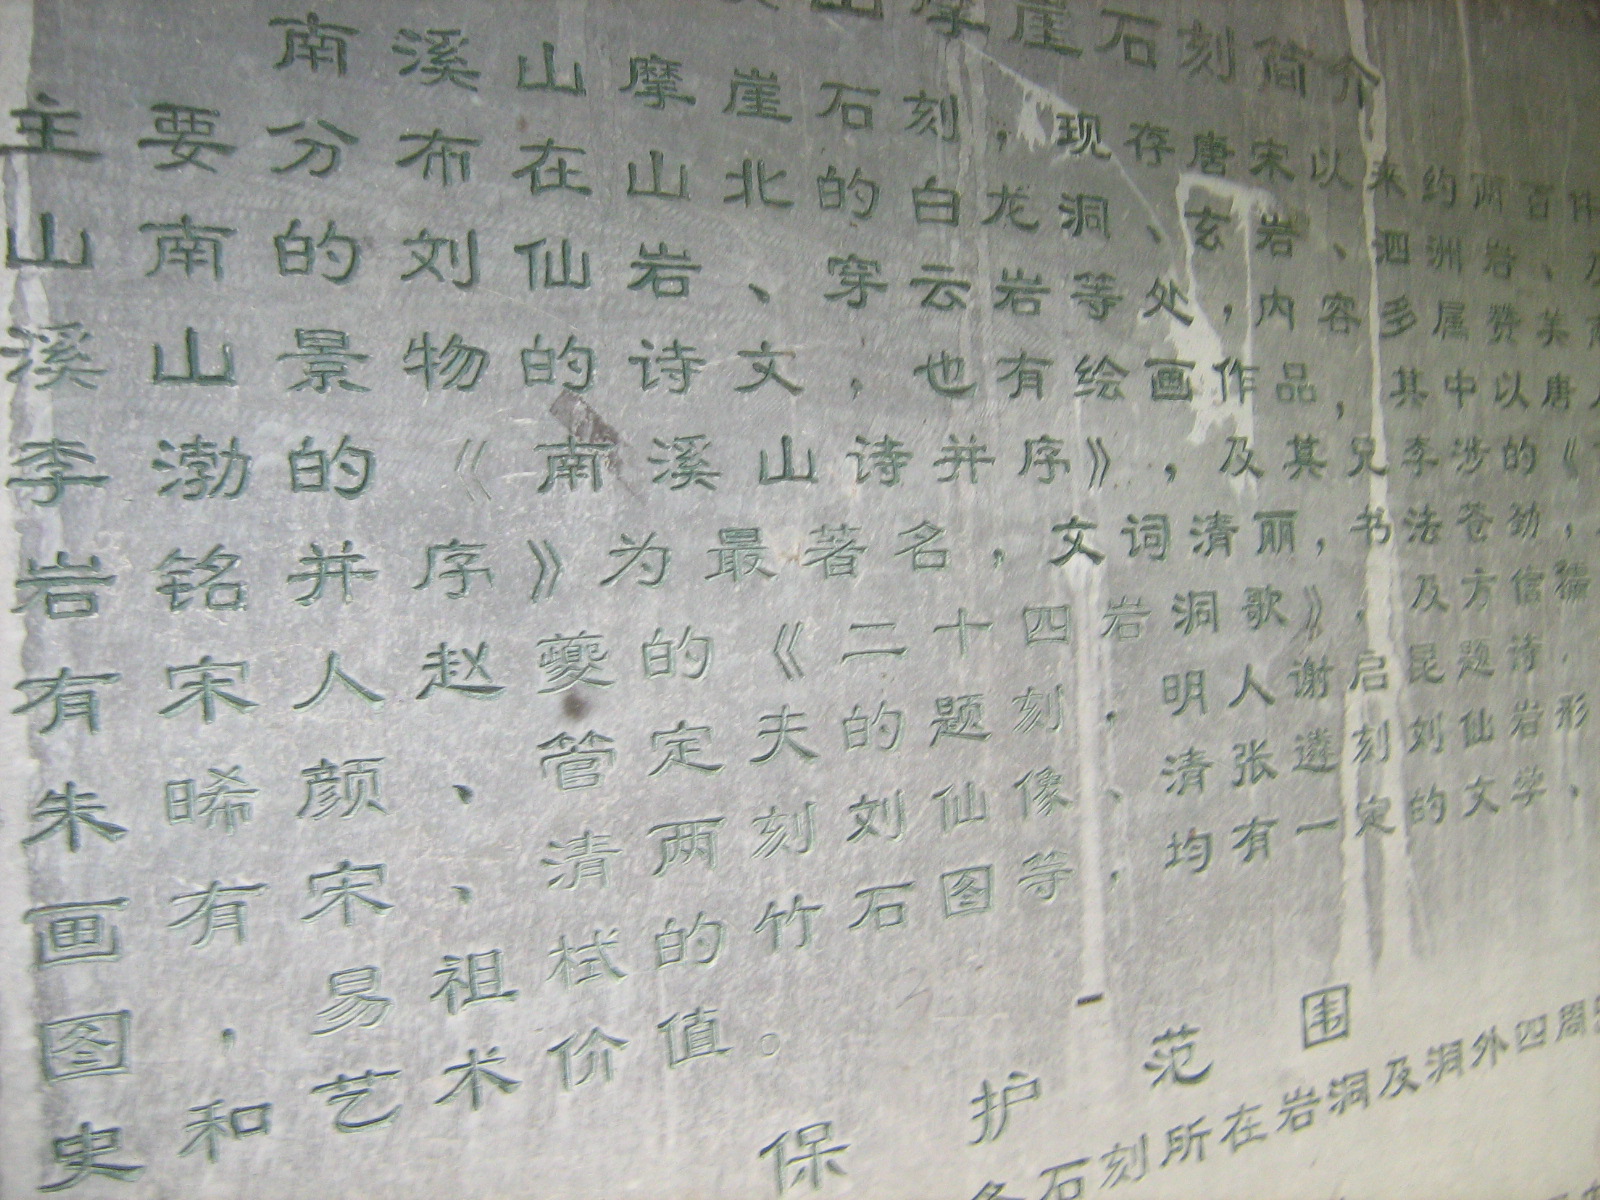 山摩崖石刻简介
南溪山摩崖石刻，现存唐宋以来约两百件
主要分布在山北的白龙洞、玄岩、泗洲岩、
山南的刘仙岩、穿云岩等处，内容多属赞美
溪山景物的诗文，也有绘画作品，其中以唐
李渤的《南溪山诗并序》，及其兄李涉的《
岩铭并序》为最著名，文词清丽，书法苍劲，
有宋人赵夔的《二十四岩洞歌》，及方信孺
朱晞颜、管定夫的题刻，明人谢启昆题诗，
画有宋、清两刻刘仙像、清张遴刻刘仙岩形
图，易祖栻的竹石图等，均有一定的文学、
史和艺术价值。
保护范围
各石刻所在岩洞及洞外四周